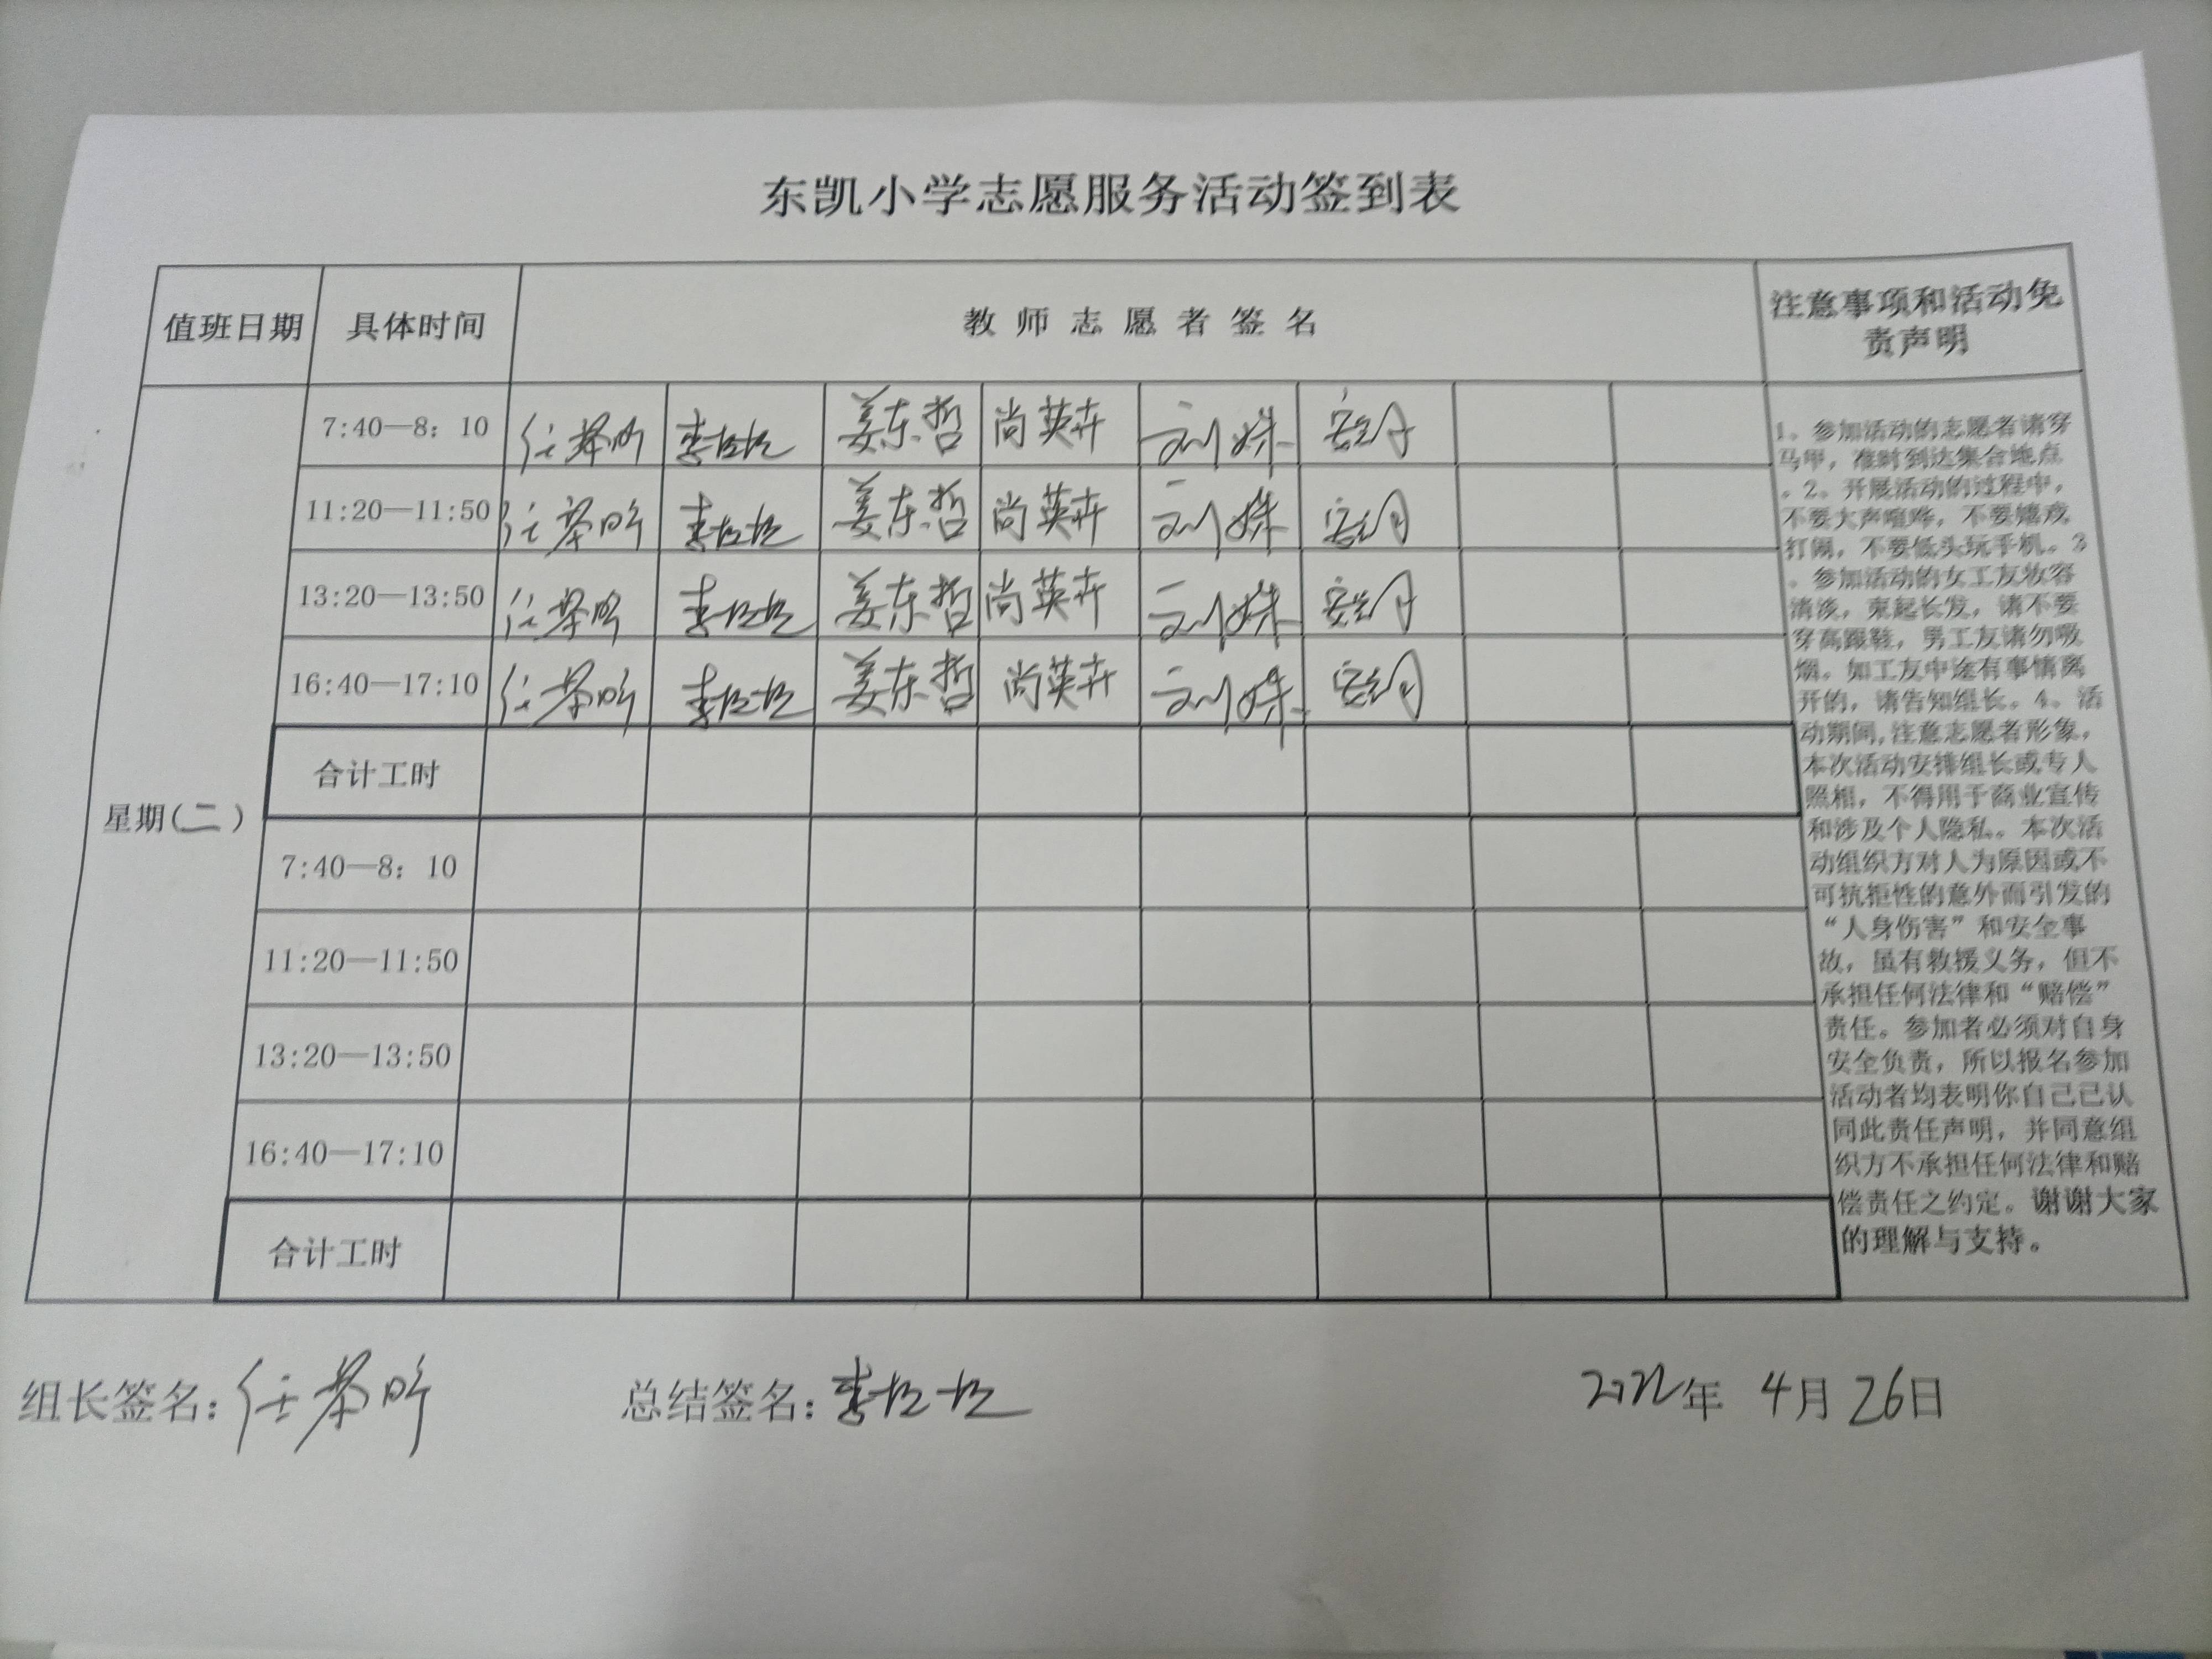 东凯小学志愿服务活动签到表
值班日期 具体时间 教师志愿者签名 注意事项和活动免
责声明
星期(二)
7:40—8：10 姜东哲 尚英卉 刘姝
11:20—11:50 姜东哲 尚英卉 刘姝
13:20—13:50 姜东哲 尚英卉 刘姝
16:40—17:10 姜东哲 尚英卉 刘姝
合计工时
7:40—8：10
11:20—11:50
13:20—13:50
16:40—17:10
合计工时
1。参加活动的志愿者请穿
马甲，准时到达集合地点
。2。开展活动的过程中，
不要大声喧哗，不要嬉戏
打闹，不要低头玩手机。3
。参加活动的女工友妆容
清淡，束起长发，请不要
穿高跟鞋，男工友请勿吸
烟。如工友中途有事情离
开的，请告知组长。4、活
动期间,注意志愿者形象，
本次活动安排组长或专人
照相，不得用于商业宣传
和涉及个人隐私。本次活
动组织方对人为原因或不
可抗拒性的意外而引发的
“人身伤害”和安全事
故，虽有救援义务，但不
承担任何法律和“赔偿”
责任。参加者必须对自身
安全负责，所以报名参加
活动者均表明你自己已认
同此责任声明，并同意组
织方不承担任何法律和赔
偿责任之约定。谢谢大家
的理解与支持。
组长签名： 总结签名： 2022年 4月 26日